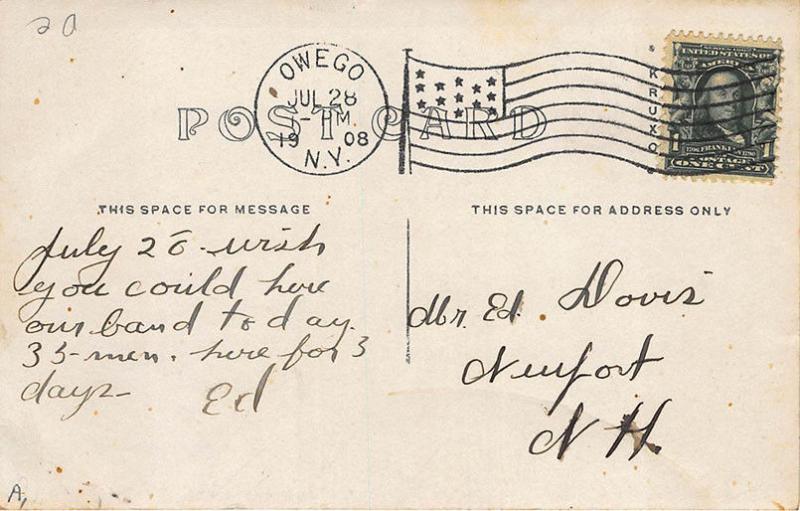 20
OWEGO
JUL 28
- PM
19 08
N.Y.
POST CARD
SERIES 1902
UNITED STATES OF
AMERICA
1706 FRANKLIN 1790
POSTAGE
1 ONE CENT 1
THIS SPACE FOR MESSAGE
July 28 - wish
you could here
our band to day.
35 - men. here for 3
days -
Ed
THIS SPACE FOR ADDRESS ONLY
Mr. Ed. Dovis
Newport
N H.
A,